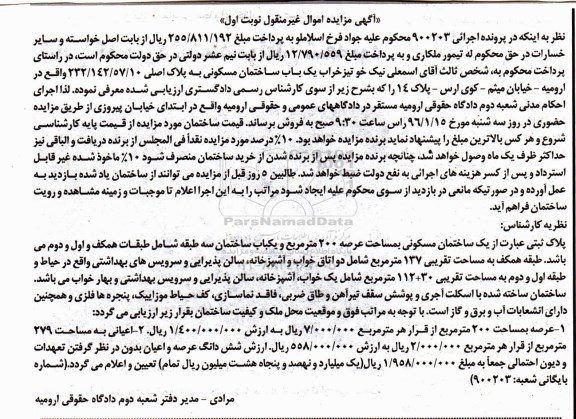 «آگهی مزایده اموال غیرمنقول نوبت اول»
نظر به اینکه در پرونده اجرائی ۹۰۰۲۰۳ محکوم علیه جواد فرخ اسلاملو به پرداخت مبلغ ۲۵۵/۸۱۱/۱۹۲ ریال از بابت اصل خواسته و سایر
خسارات در حق محکوم له تیمور ملکاری و به پرداخت مبلغ ۱۲/۷۹۰/۵۵۹ ریال از بابت نیم عشر دولتی در حق دولت محکوم است، در راستای
پرداخت محکوم به، شخص ثالث آقای اسمعلی نیک خو تیزخراب یک باب ساختمان مسکونی به پلاک اصلی ۲۳۲/۱۴۲/۵۷/۱۰ واقع در
ارومیه - خیابان میثم - کوی ارس - پلاک ۱۴ را که بشرح زیر از سوی کارشناس رسمی دادگستری ارزیابی شده معرفی نموده. لذا اجرای
احکام مدنی شعبه دوم دادگاه حقوقی ارومیه مستقر در دادگاههای عمومی و حقوقی ارومیه واقع در ابتدای خیابان پیروزی از طریق مزایده
حضوری در روز سه شنبه مورخ ۹۶/۱/۱۵ راس ساعت ۹:۳۰ صبح به فروش برساند. قیمت ساختمان مورد مزایده از قیمت پایه کارشناسی
شروع و هر کس بالاترین مبلغ را پیشنهاد نماید برنده مزایده خواهد بود. ۱۰٪ درصد مورد مزایده نقداً فی المجلس از برنده دریافت و الباقی نیز
حداکثر ظرف یک ماه وصول خواهد شد، چنانچه برنده مزایده پس از برنده شدن از خرید ساختمان منصرف شود ۱۰٪ ماخوذ شده غیر قابل
استرداد و پس از کسر هزینه های اجرائی به نفع دولت ضبط خواهد شد. طالبین ۵ روز قبل از مزایده می توانند از ساختمان یاد شده بازدید به
عمل آورده و در صورتیکه مانعی در بازدید از سوی محکوم علیه ایجاد شود مراتب را به این اجرا اعلام تا موجبات و زمینه مشاهده و رویت
ساختمان فراهم آید.
نظریه کارشناس:
پلاک ثبتی عبارت از یک ساختمان مسکونی بمساحت عرصه ۲۰۰ مترمربع و یکباب ساختمان سه طبقه شامل طبقات همکف و اول و دوم می
باشد. طبقه همکف به مساحت تقریبی ۱۳۷ مترمربع شامل دو اتاق خواب و آشپزخانه، سالن پذیرایی و سرویس های بهداشتی واقع در حیاط و
طبقه اول و دوم به مساحت تقریبی ۳۰+۱۱۲ مترمربع شامل یک خواب، آشپزخانه، سالن پذیرایی و سرویس بهداشتی و بهار خواب می باشد.
ساختمان ساخته شده با اسکلت آجری و پوشش سقف تیرآهن و طاق ضربی، فاقد نماسازی، کف حیاط موزاییک، پنجره ها فلزی و همچنین
دارای انشعابات آب و برق و گاز است. با توجه به مراتب فوق و موقعیت محل ملک و کیفیت ساختمان بقرار زیر ارزیابی می گردد:
۱-عرصه بمساحت ۲۰۰ مترمربع از قرار هر مترمربع ۷/۰۰۰/۰۰۰ ریال به ارزش ۱/۴۰۰/۰۰۰/۰۰۰ ریال. ۲-اعیانی به مساحت ۲۷۹
مترمربع از قرار هر مترمربع ۲/۰۰۰/۰۰۰ ریال به ارزش ۵۵۸/۰۰۰/۰۰۰ ریال. ارزش شش دانگ عرصه و اعیان بدون در نظر گرفتن تعهدات
و دیون احتمالی جمعاً به مبلغ ۱/۹۵۸/۰۰۰/۰۰۰ ریال(یک میلیارد و نهصد و پنجاه هشت میلیون ریال تمام) تعیین و اعلام می گردد.(شماره
بایگانی شعبه: ۹۰۰۲۰۳)
مرادی - مدیر دفتر شعبه دوم دادگاه حقوقی ارومیه
ParsNamadData